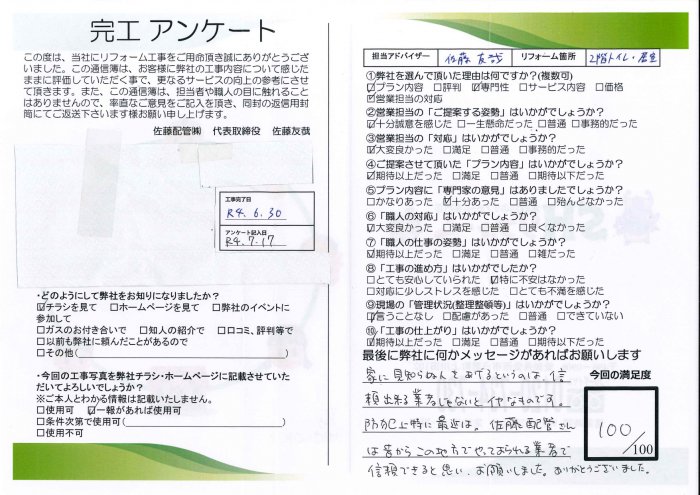 完工 アンケート
この度は、当社にリフォーム工事をご用命頂き誠にありがとうござ
いました。この通信簿は、お客様に弊社の工事内容について感じた
ままに評価していただく事で、更なるサービスの向上の参考にさせ
て頂きます。また、この通信簿は、担当者や職人の目に触れること
はありませんので、率直なご意見をご記入を頂き、同封の返信用封
筒にてご返送下さいます様お願い申し上げます。
佐藤配管㈱ 代表取締役 佐藤友哉
工事完了日
R4.6.30
アンケート記入日
R4.7.17
・どのようにして弊社をお知りになりましたか？
☑チラシを見て □ホームページを見て □弊社のイベントに
参加して
□ガスのお付き合いで □知人の紹介で □口コミ、評判等で
□以前も弊社に頼んだことがあるので
□その他( )
・今回の工事写真を弊社チラシ・ホームページに記載させていた
だいてよろしいでしょうか？
※ご本人とわかる情報は記載いたしません。
□使用可 ☑一報があれば使用可
□条件次第で使用可( )
□使用不可
担当アドバイザー 佐藤 友哉 リフォーム箇所 2階トイレ・居室
①弊社を選んで頂いた理由は何ですか？(複数可)
☑プラン内容 □評判 ☑専門性 □サービス内容 □価格
☑営業担当の対応
②営業担当の「ご提案する姿勢」はいかがでしょうか？
☑十分誠意を感じた □一生懸命だった □普通 □事務的だった
③営業担当の「対応」はいかがでしょうか？
☑大変良かった □満足 □普通 □事務的だった
④ご提案させて頂いた「プラン内容」はいかがでしょうか？
☑期待以上だった □満足 □普通 □期待以下だった
⑤プラン内容に「専門家の意見」はありましたでしょうか？
□かなりあった ☑十分あった □普通 □殆んどなかった
⑥「職人の対応」はいかがでしょうか？
☑大変良かった □満足 □普通 □良くなかった
⑦「職人の仕事の姿勢」はいかがでしょうか？
☑期待以上だった □満足 □普通 □雑だった
⑧「工事の進め方」はいかがでしたか？
□とても安心していられた ☑特に不安はなかった
□対応に少しストレスを感じた □とても不満を感じた
⑨現場の「管理状況(整理整頓等)」はいかがでしょうか？
☑言うことなし □配慮があった □普通 □できていない
⑩「工事の仕上がり」はいかがでしょうか？
☑期待以上だった □満足 □普通 □期待以下だった
最後に弊社に何かメッセージがあればお願いします
家に見知らぬ人をあげるというのは、信
頼出来る業者じゃないとイヤなものです。
防犯上特に最近は。佐藤配管さん
は昔からこの地方でやっておられる業者で
信頼できると思い、お願いしました。ありがとうございました。
今回の満足度
100
/100